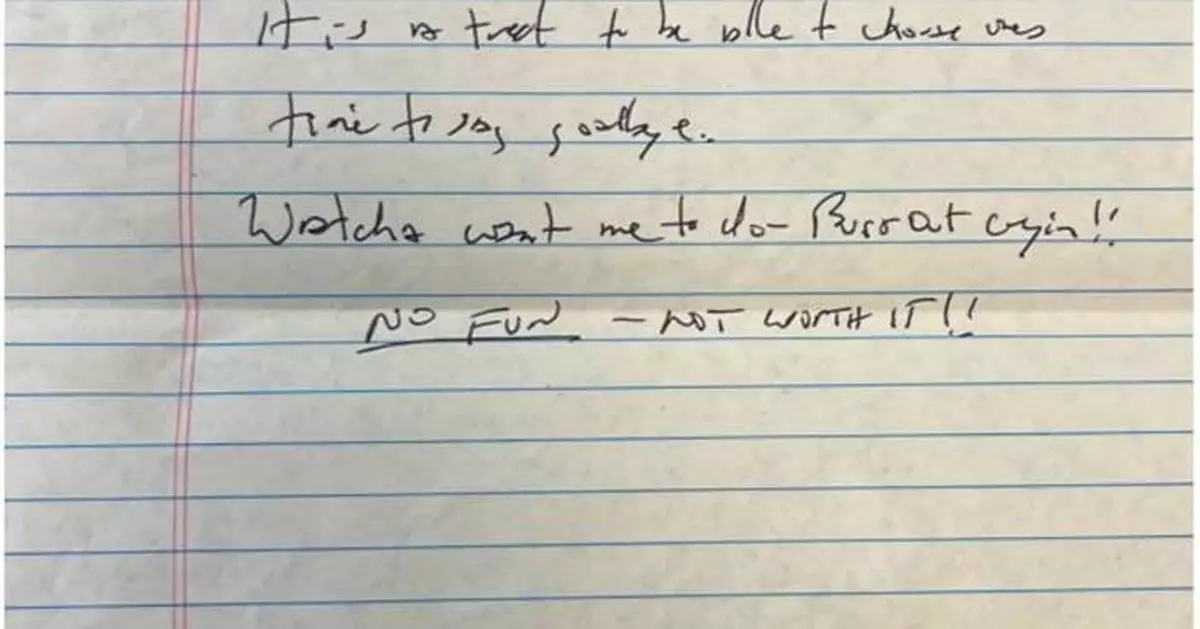 It is a treat to be able to choose ones
time to say goodbye.
Watcha want me to do - Burst Out cryin!!
NO FUN - NOT WORTH IT!!